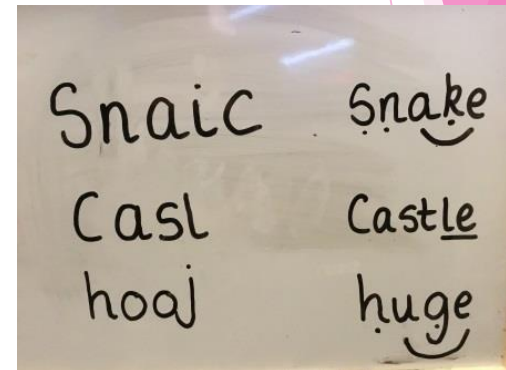 Snaic Snake
Casl Castle
hoaj huge